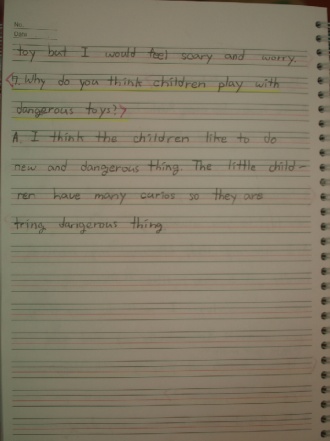 No.
Date
toy but I would feel scary and worry.
<9. Why do you think children play with
dangerous toys?>
A. I think the children like to do
new and dangerous thing. The little child-
ren have many curios so they are
tring dangerous thing.